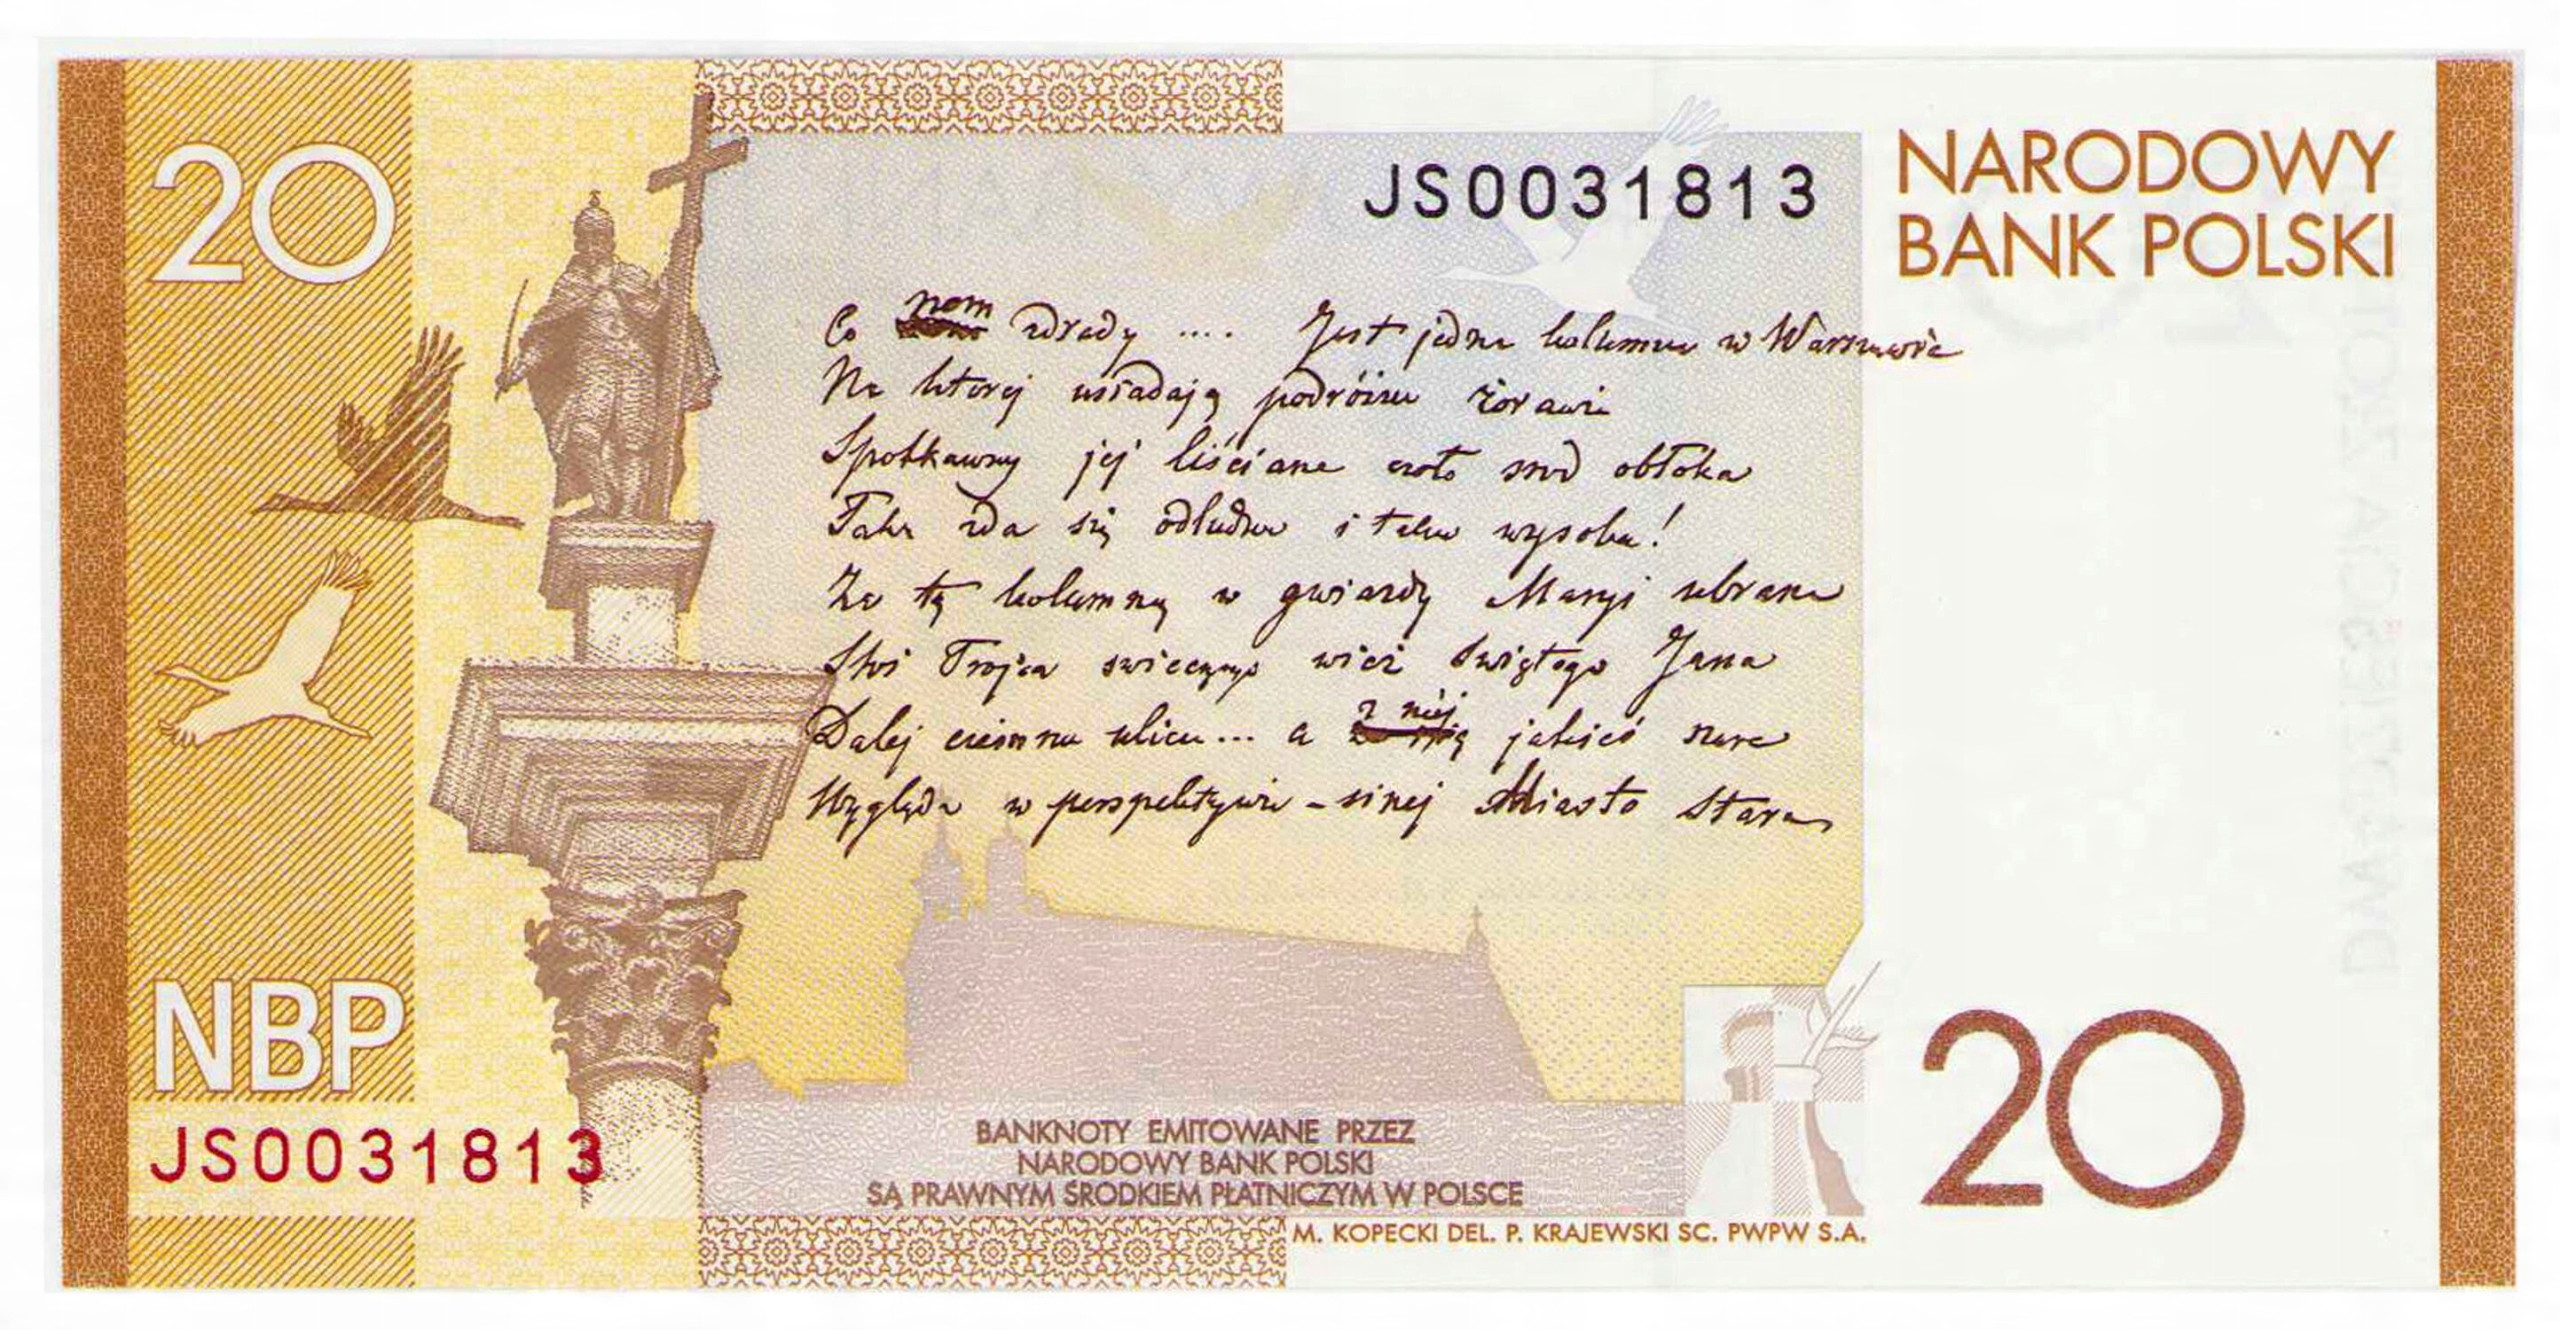 20
JS0031813
NARODOWY
BANK POLSKI
Co nam zdrady .... Jest jedna kolumna w Warszawie
Na ktorej usiadają podróżne żórawie
Spotkawszy jej liściane czoło śród obłoka
Taka zda się odludna i taka wysoka!
Za tą kolumną w gwiazdy Maryi ubrana
Stoi Trojca swiecącego wież Swiętego Jana
Dalej ciemna ulica... a z niéj jakieś szare
Wygląda w perspektywie - sinej Miasto Stare
NBP
JS0031813
BANKNOTY EMITOWANE PRZEZ
NARODOWY BANK POLSKI
SĄ PRAWNYM ŚRODKIEM PŁATNICZYM W POLSCE
M. KOPECKI DEL. P. KRAJEWSKI SC. PWPW S.A.
20